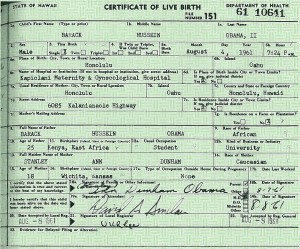 STATE OF HAWAII CERTIFICATE OF LIVE BIRTH DEPARTMENT OF HEALTH
FILE NUMBER 151 61 10641
1a. Child's First Name (Type or print) 1b. Middle Name 1c. Last Name
BARACK HUSSEIN OBAMA, II
2. Sex 3. This Birth 4. If Twin or Triplet, Was Child Born 5a. Birth Date Month Day Year 5b. Hour
Male Single Twin Triplet 1st 2nd 3rd August 4, 1961 7:24 P.M.
6a. Place of Birth: City, Town or Rural Location 6b. Island
Honolulu Oahu
6c. Name of Hospital or Institution (If not in hospital or institution, give street address) 6d. Is Place of Birth Inside City or Town Limits?
Kapiolani Maternity & Gynecological Hospital
7a. Usual Residence of Mother: City, Town or Rural Location 7b. Island 7c. County and State or Foreign Country
Honolulu Oahu Honolulu, Hawaii
7d. Street Address 7e. Is Residence Inside City or Town Limits?
6085 Kalanianaole Highway
7f. Mother's Mailing Address 7g. Is Residence on a Farm or Plantation?
8. Full Name of Father 9. Race of Father
BARACK HUSSEIN OBAMA African
10. Age of Father 11. Birthplace 12a. Usual Occupation 12b. Kind of Business or Industry
25 Kenya, East Africa Student University
13. Full Maiden Name of Mother 14. Race of Mother
STANLEY ANN DUNHAM Caucasian
15. Age of Mother 16. Birthplace 17a. Type of Occupation Outside Home During Pregnancy 17b. Date Last Worked
18 Wichita, Kansas None
I certify that the above stated information is true and correct to the best of my knowledge.
18a. Signature of Parent or Other Informant Parent 18b. Date of Signature
Dunham Obama 8-7-61
I hereby certify that this child was born alive on the date and hour stated above.
19a. Signature of Attendant 19b. Date of Signature
8-8-61
20. Date Accepted by Local Reg. 21. Signature of Local Registrar 22. Date Accepted by Reg. General
AUG -8 1961 AUG -8 1961
23. Evidence for Delayed Filing or Alteration